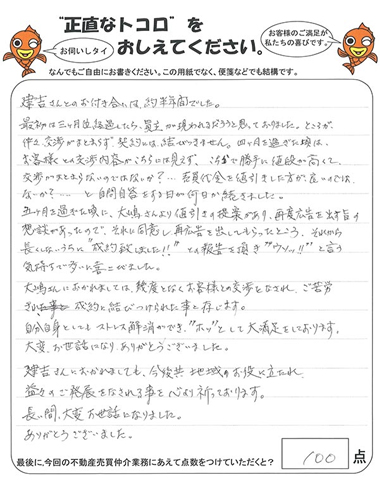 "正直なトコロ" を
おしえてください。
お伺いしタイ
お客様のご満足が
私たちの喜びです。
なんでもご自由にお書きください。この用紙でなく、便箋などでも結構です。
建吉さんとのお付き合いは、約半年間でした。
最初は三ヶ月位経過したら、買主が現われるだろうと思っておりました。ところが、
仲々交渉がまとまらず、契約には結びつきません。四ヶ月を過ぎた頃は、
お客様との交渉内容がこちらには見えず、こちらで勝手に値段が高くて、
交渉がまとまらないのではないか?…売買代金を値引きした方が、良いのでは
ないか?……と自問自答をする日が何日か続きました。
五ヶ月を過ぎた頃に、大嶋さんより値引きの提案があり、再度広告を出す旨の
相談があったので、それに同意し再広告を出してもらったところ、それから
長くしないうちに"成約致しました!!"との報告を頂き"ウソッ!!"と言う
気持ちで多いに喜こびました。
大嶋さんにおかれましては、幾度となくお客様との交渉をなされ、ご苦労
成約と結びつけられた事と存じます。
自分自身としてもストレス解消ができ、"ホッ"として大満足をしております。
大変、お世話になり、ありがとうございました。
建吉さんにおかれましても、今後共地域のお役に立たれ、
益々のご発展をなされる事を心より祈っております。
長い間、大変お世話になりました。
ありがとうございました。
最後に、今回の不動産売買仲介業務にあえて点数をつけていただくと? 100 点